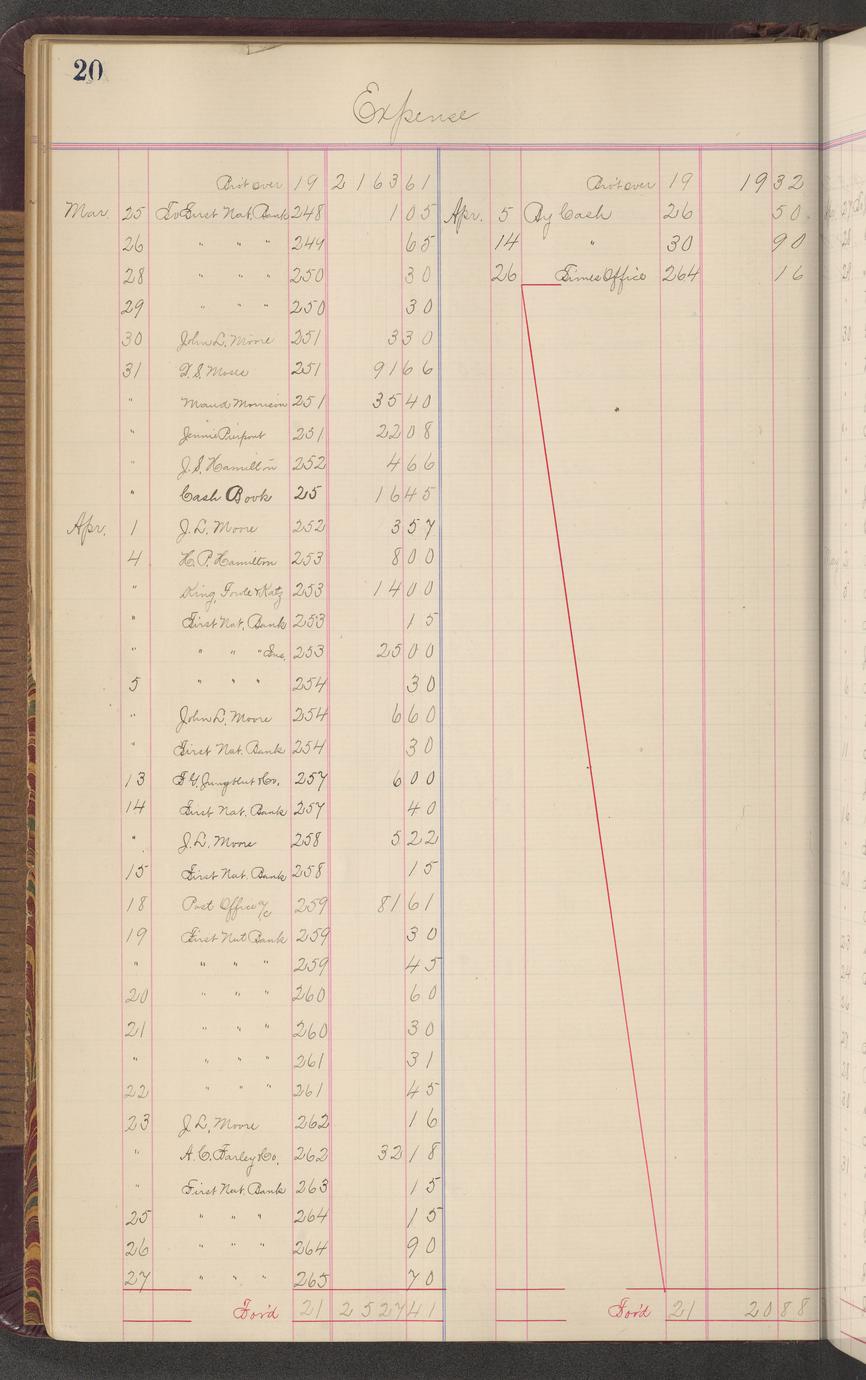 20
Expense
Bro't over 19 2163 61
Mar. 25 To First Nat. Bank 248 1 05
26 " " " 249 65
28 " " " 250 30
29 " " " 250 30
30 John L. Moore 251 3 30
31 F. S. Moses 251 91 66
" Maud Morrison 251 35 40
" Jennie Pierpont 251 22 08
" J. S. Hamilton 252 4 66
" Cash Book 25 16 45
Apr. 1 J. L. Moore 252 3 57
4 H. P. Hamilton 253 8 00
" King, Fowle & Katz 253 14 00
" First Nat. Bank 253 15
" " " " 253 25 00
5 " " " 254 30
" John L. Moore 254 6 60
" First Nat. Bank 254 30
13 & Co. 257 6 00
14 First Nat. Bank 257 40
" J. L. Moore 258 5 22
15 First Nat. Bank 258 15
18 Post Office a/c 259 81 61
19 First Nat Bank 259 30
" " " " 259 45
20 " " " 260 60
21 " " " 260 30
" " " " 261 31
22 " " " 261 45
23 J. L. Moore 262 16
" A. C. Farley & Co. 262 32 18
" First Nat. Bank 263 15
25 " " " 264 15
26 " " " 264 90
27 " " " 265 70
For'd 21 2527 41
Bro't over 19 19 32
Apr. 5 By Cash 26 50
14 " 30 90
26 Times Office 264 16
For'd 21 20 88